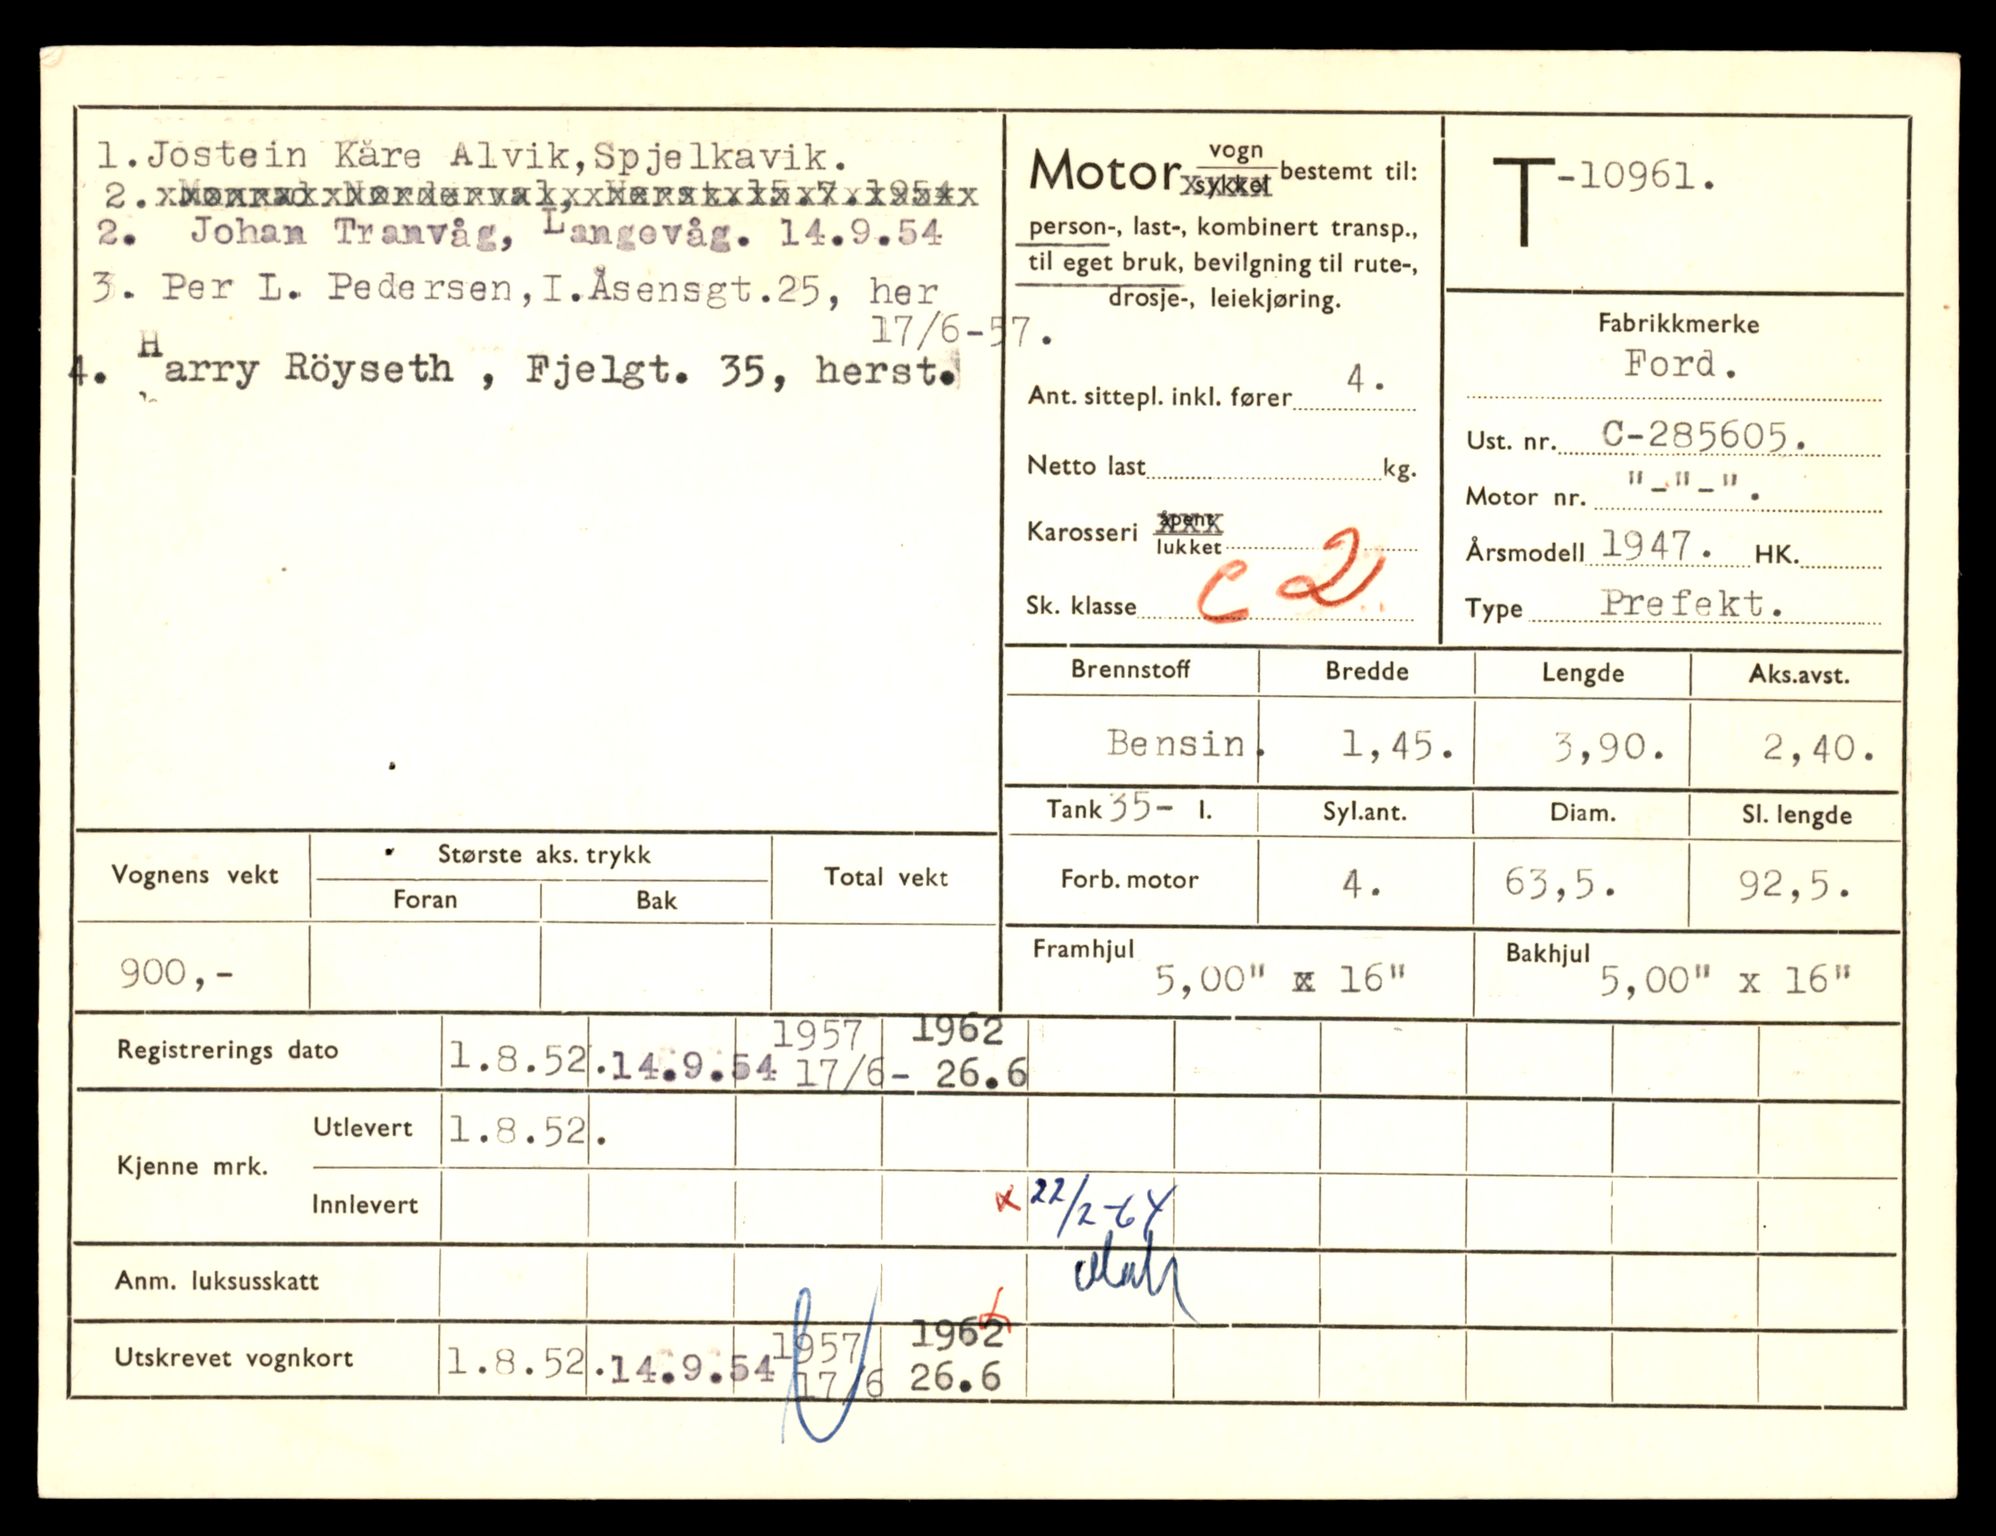 1.Jostein Kåre Alvik,Spjelkavik.
2.
2. Johan Tranvåg, Langevåg. 14.9.54
3. Per L. Pedersen,I.Åsensgt.25, her
17/6-57.
4. Harry Röyseth , Fjelgt. 35, herst.
Motor vogn bestemt til:
sykkel
person-, last-, kombinert transp.,
til eget bruk, bevilgning til rute-,
drosje-, leiekjøring.
Ant. sittepl. inkl. fører 4.
Netto last kg.
Karosseri åpent
lukket
Sk. klasse C 2
T-10961.
Fabrikkmerke
Ford.
Ust. nr. C-285605.
Motor nr. "-"-".
Årsmodell 1947. HK.
Type Prefekt.
Brennstoff Bredde Lengde Aks.avst.
Bensin. 1,45. 3,90. 2,40.
Tank 35- l. Syl.ant. Diam. Sl. lengde
Forb. motor 4. 63,5. 92,5.
Framhjul 5,00" x 16" Bakhjul 5,00" x 16"
Vognens vekt Største aks. trykk Total vekt
Foran Bak
900,-
1957 1962
Registrerings dato 1.8.52. 14.9.54 17/6- 26.6
Kjenne mrk. Utlevert 1.8.52.
Innlevert x 22/2-64
Anm. luksusskatt
1957 1962
Utskrevet vognkort 1.8.52. 14.9.54 17/6 26.6